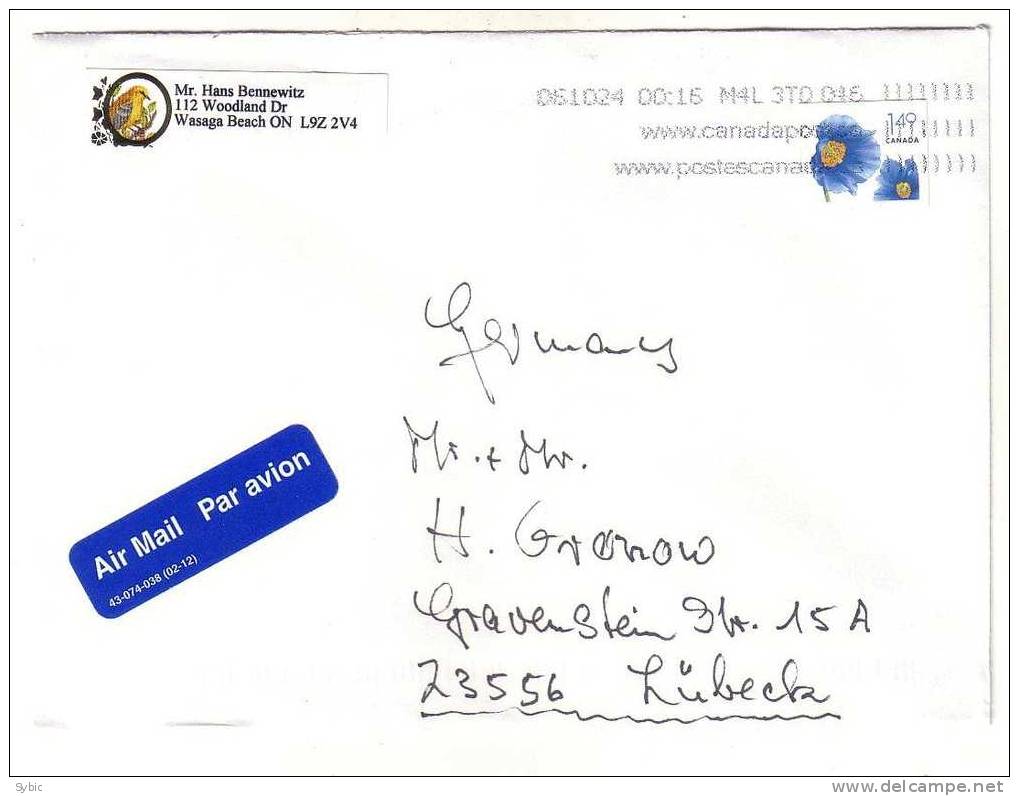 Mr. Hans Bennewitz
112 Woodland Dr
Wasaga Beach ON L9Z 2V4
061024 00:16 M4L 3T0 046
www.canadapost
www.postescanada
149
CANADA
Germany
Mr. + Mr.
H. Gronow
Gravenstein Str. 15 A
23556 Lübeck
Air Mail Par avion
43-074-038 (02-12)
Sybic
www.delcampe.net